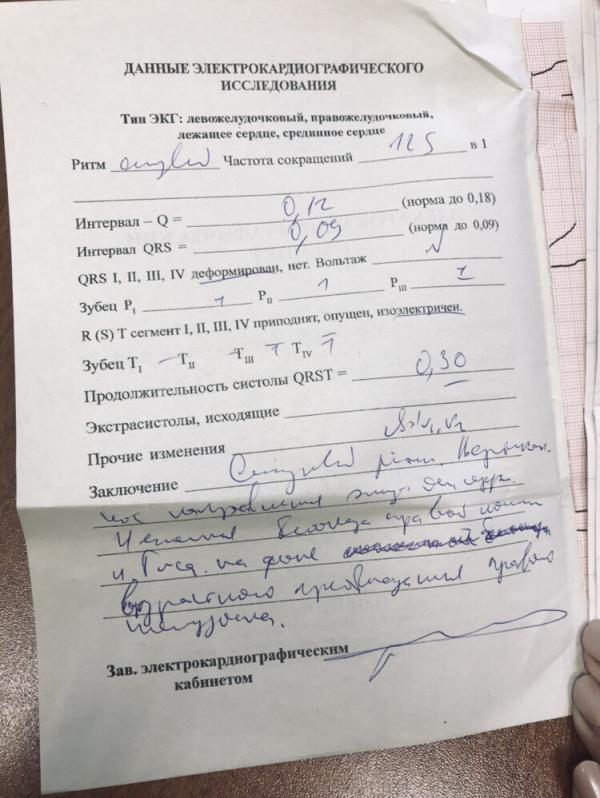 ДАННЫЕ ЭЛЕКТРОКАРДИОГРАФИЧЕСКОГО
ИССЛЕДОВАНИЯ
Тип ЭКГ: левожелудочковый, правожелудочковый,
лежащее сердце, срединное сердце
Ритм Частота сокращений 125 в 1
Интервал – Q = 0,12 (норма до 0,18)
Интервал QRS = 0,09 (норма до 0,09)
QRS I, II, III, IV деформирован, нет. Вольтаж N
Зубец PI 1 PII 1 PIII
R (S) T сегмент I, II, III, IV приподнят, опущен, изоэлектричен.
Зубец TI TII TIII TIV
Продолжительность систолы QRST = 0,30
Экстрасистолы, исходящие
Прочие изменения
Заключение Синусовый ритм. Вертикал.
ное направление эл. оси сердца.
Неполная блокада правой ножки
п. Гиса на фоне
возрастного преобладания правого
желудочка.
Зав. электрокардиографическим
кабинетом